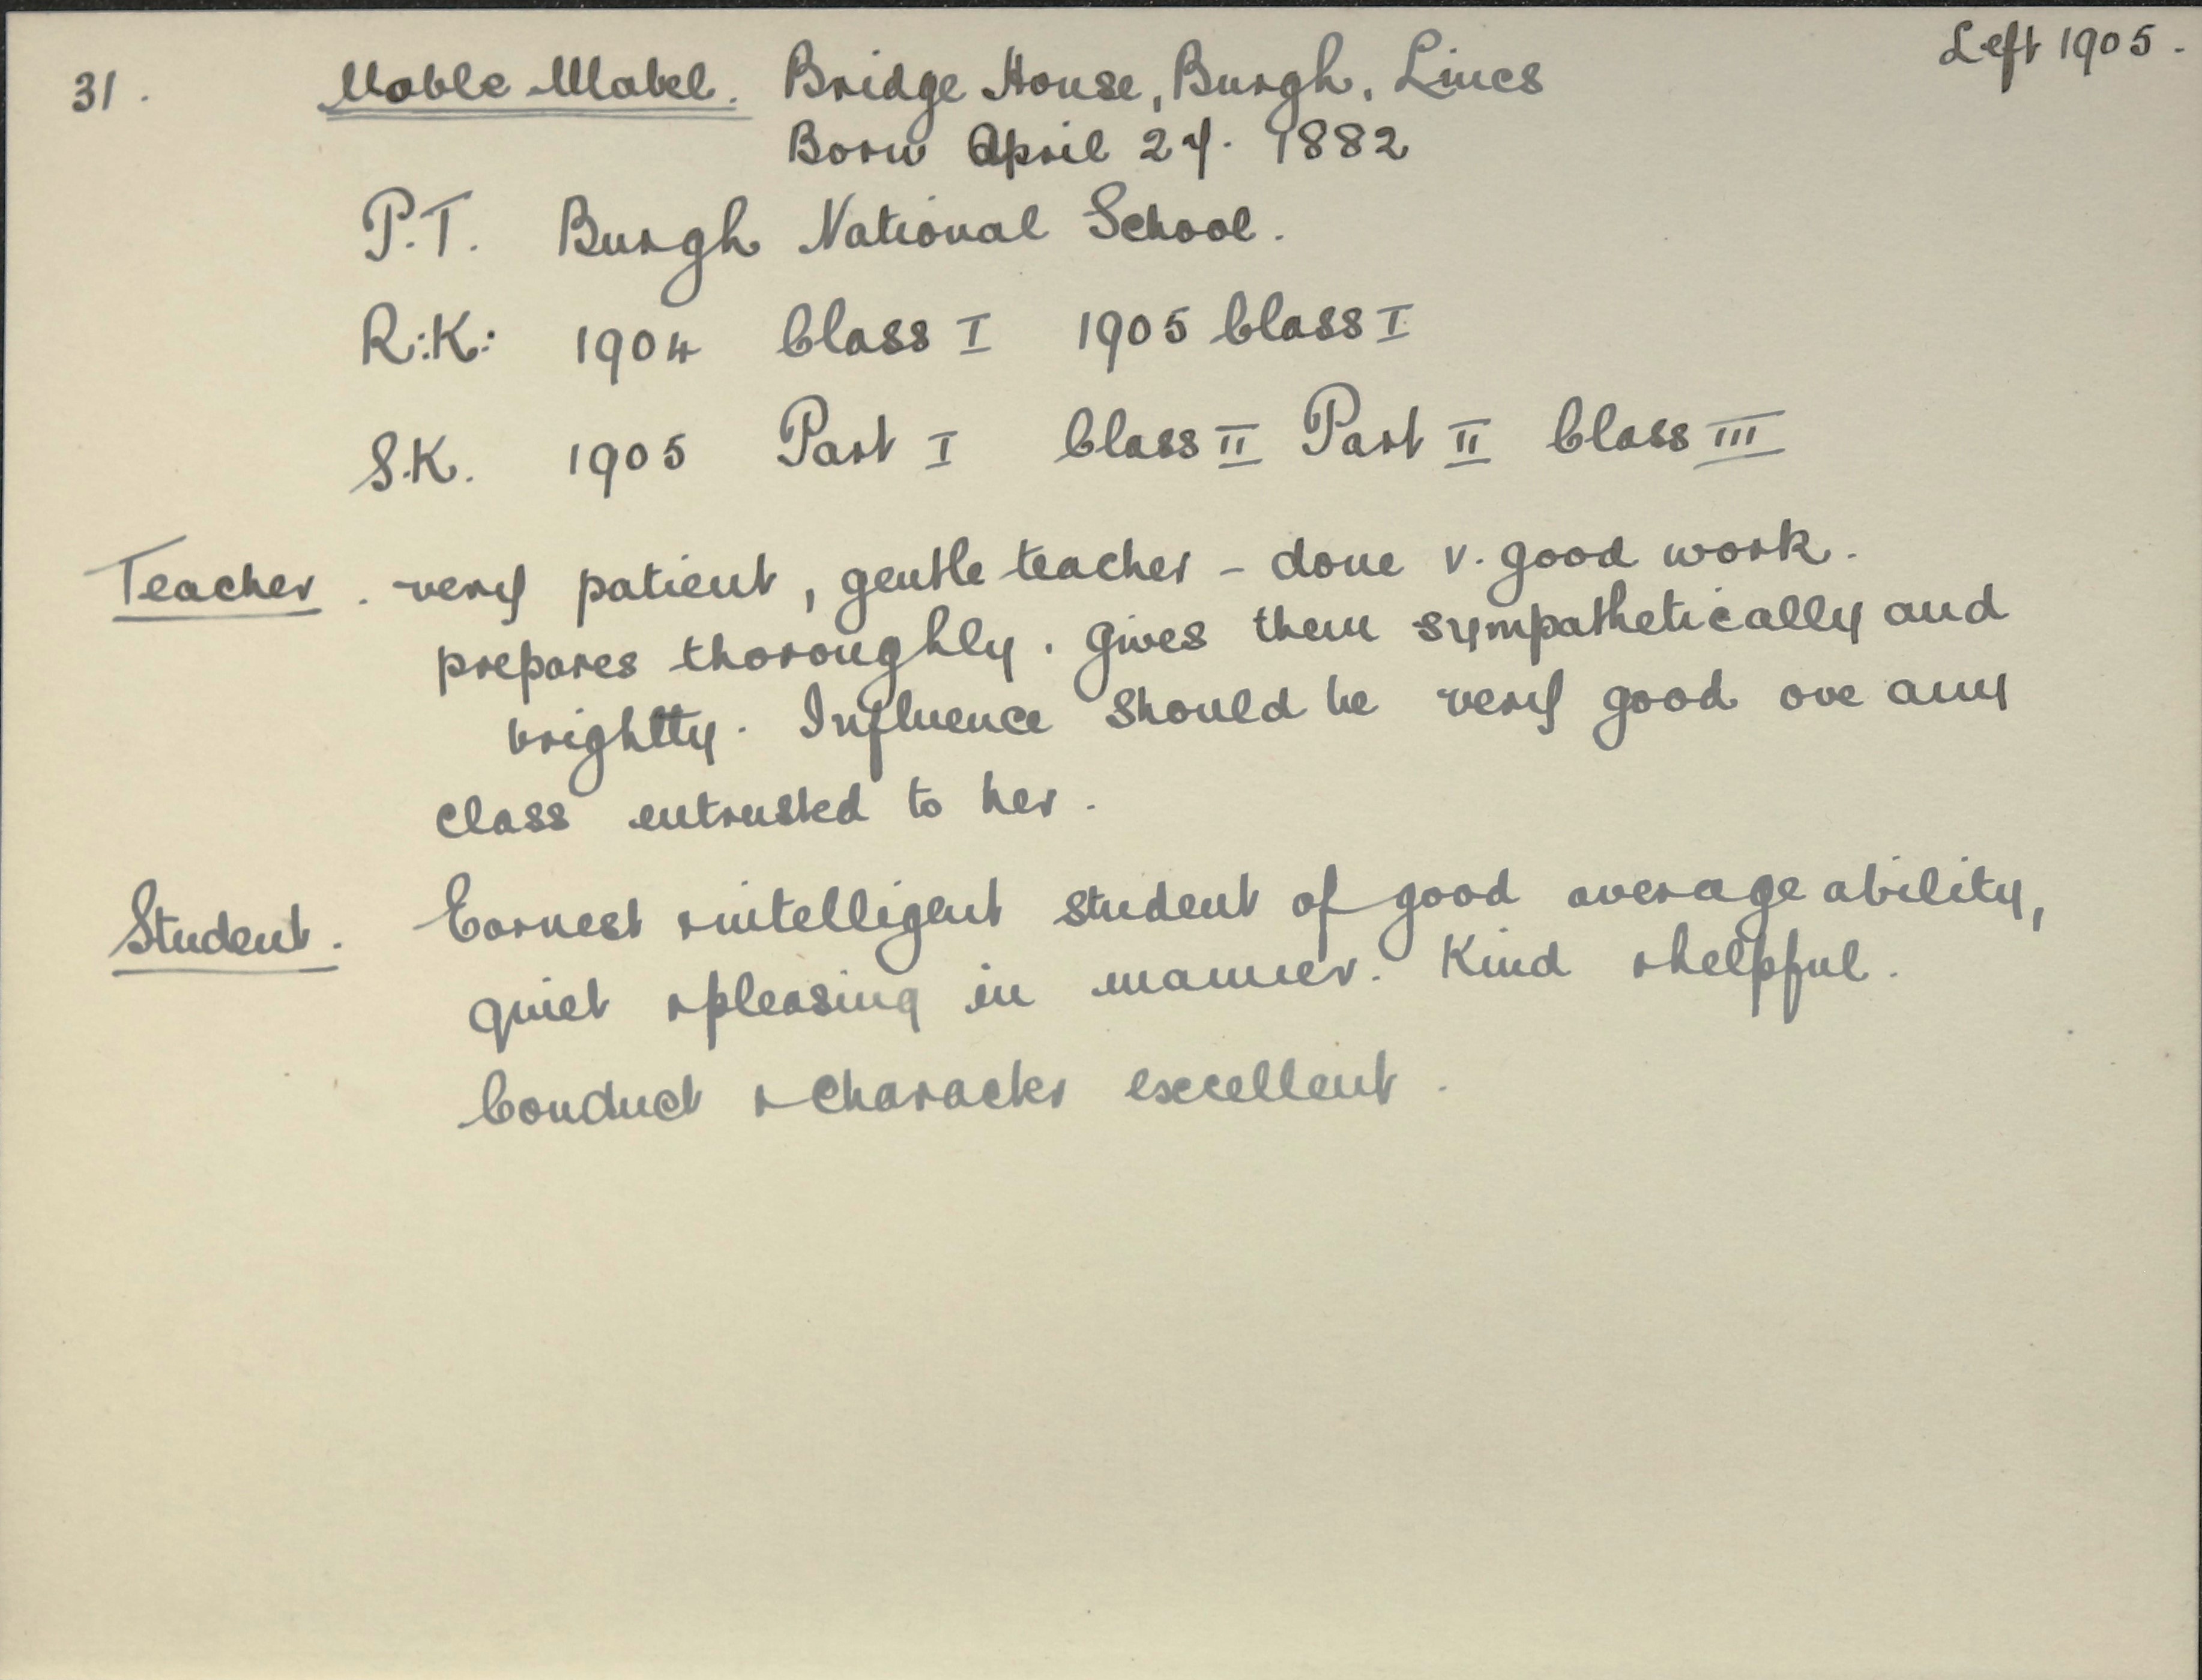 31. Noble Mabel. Bridge House, Burgh, Lincs Left 1905.
Born April 27. 1882
P.T. Burgh National School.
R:K: 1904 Class I 1905 Class I
S.K. 1905 Part I Class II Part II Class III
Teacher. very patient, gentle teacher - done v. good work.
prepares thoroughly. Gives them sympathetically and
brightly. Influence should be very good ove any
class entrusted to her.
Student. Earnest & intelligent student of good average ability,
quiet & pleasing in manner. Kind & helpful.
Conduct & character excellent.